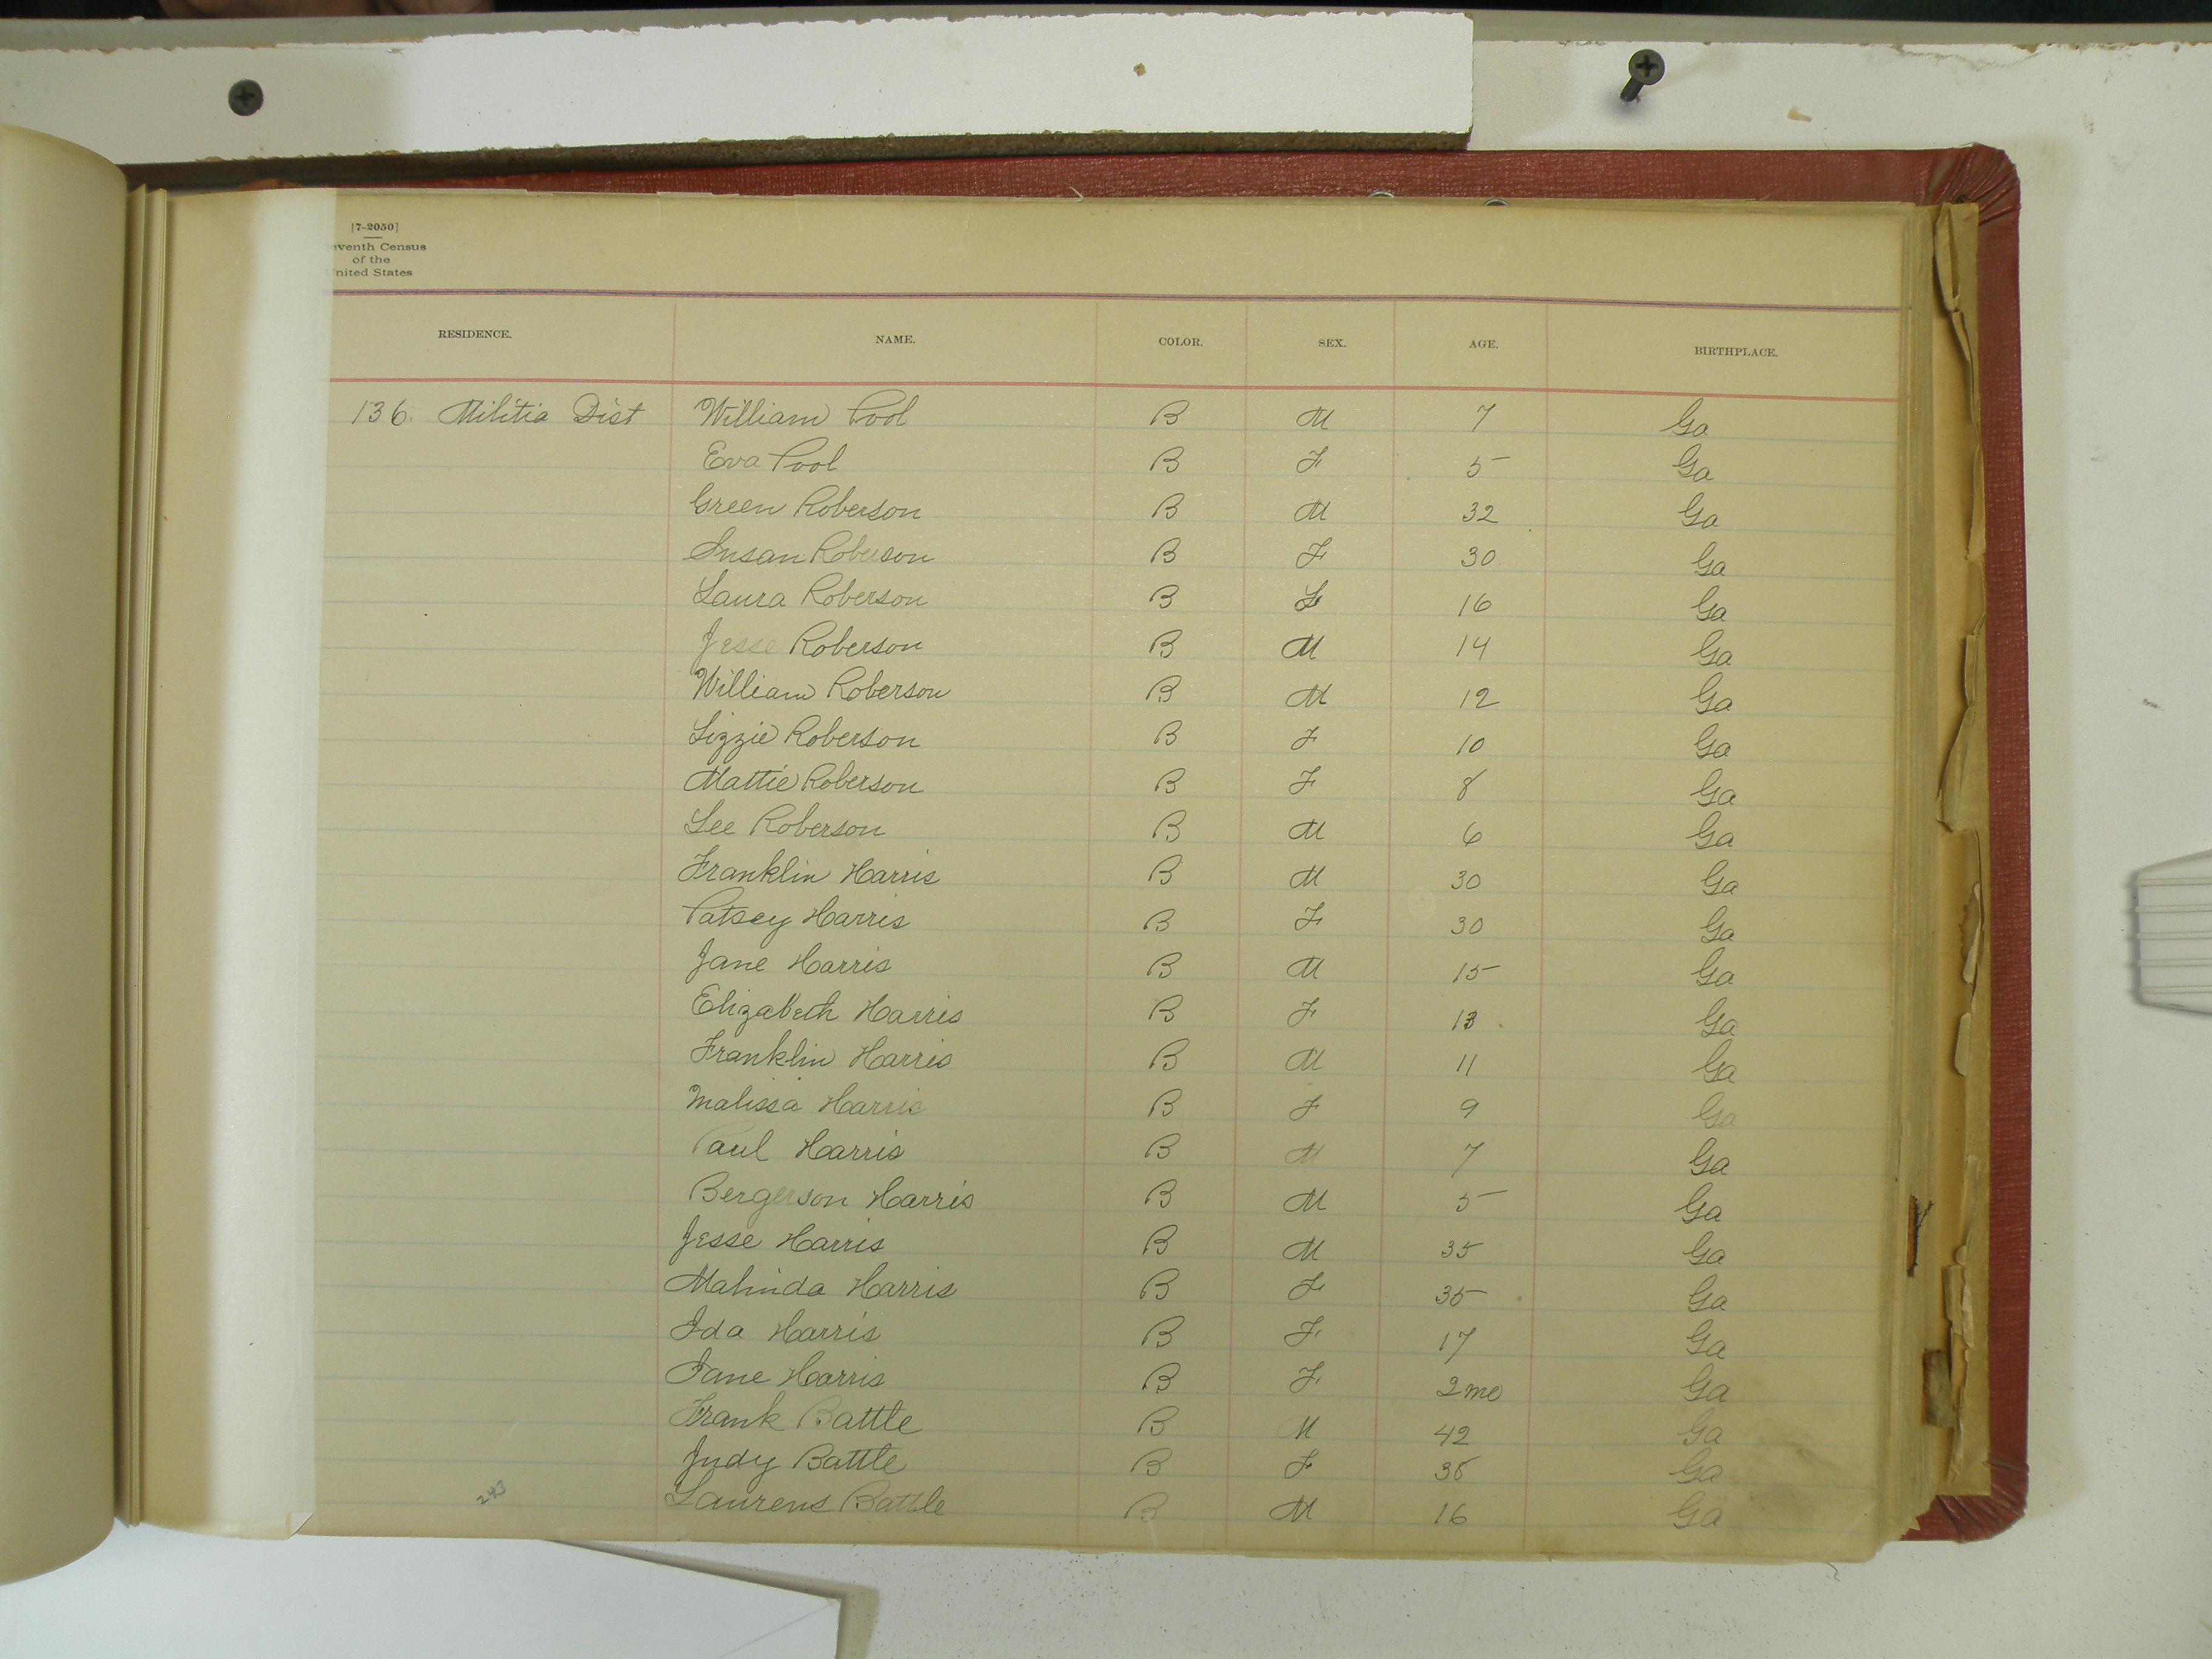 [7-2050]
venth Census
of the
nited States
RESIDENCE. NAME. COLOR. SEX. AGE. BIRTHPLACE.
136. Militia Dist William Pool B M 7 Ga
Eva Pool B F 5 Ga
Green Roberson B M 32 Ga
Susan Roberson B F 30 Ga
Laura Roberson B F 16 Ga
Jesse Roberson B M 14 Ga
William Roberson B M 12 Ga
Lizzie Roberson B F 10 Ga
Mattie Roberson B F 8 Ga
Lee Roberson B M 6 Ga
Franklin Harris B M 30 Ga
Patsey Harris B F 30 Ga
Jane Harris B M 15 Ga
Elizabeth Harris B F 13 Ga
Franklin Harris B M 11 Ga
Malissa Harris B F 9 Ga
Paul Harris B M 7 Ga
Bergerson Harris B M 5 Ga
Jesse Harris B M 35 Ga
Malinda Harris B F 35 Ga
Ida Harris B F 17 Ga
Jane Harris B F 2mo Ga
Frank Battle B M 42 Ga
Judy Battle B F 36 Ga
Laurens Battle B M 16 Ga
243